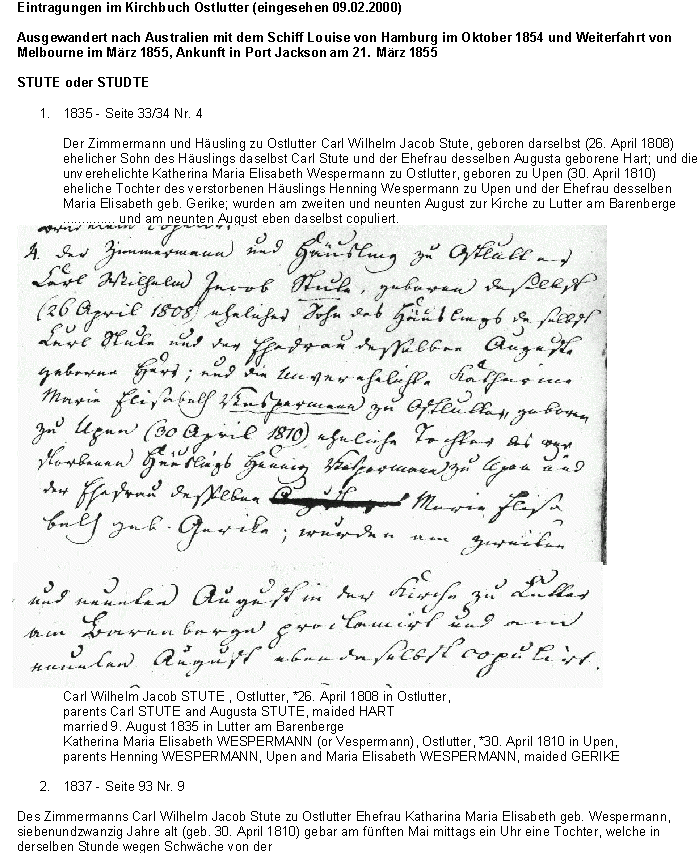 Eintragungen im Kirchbuch Ostlutter (eingesehen 09.02.2000)
Ausgewandert nach Australien mit dem Schiff Louise von Hamburg im Oktober 1854 und Weiterfahrt von
Melbourne im März 1855, Ankunft in Port Jackson am 21. März 1855
STUTE oder STUDTE
1. 1835 - Seite 33/34 Nr. 4
Der Zimmermann und Häusling zu Ostlutter Carl Wilhelm Jacob Stute, geboren darselbst (26. April 1808)
ehelicher Sohn des Häuslings daselbst Carl Stute und der Ehefrau desselben Augusta geborene Hart; und die
unverehelichte Katherina Maria Elisabeth Wespermann zu Ostlutter, geboren zu Upen (30. April 1810)
eheliche Tochter des verstorbenen Häuslings Henning Wespermann zu Upen und der Ehefrau desselben
Maria Elisabeth geb. Gerike; wurden am zweiten und neunten August zur Kirche zu Lutter am Barenberge
.............. und am neunten August eben daselbst copuliert.
4. der Zimmermann und Häusling zu Ostlutter
Carl Wilhelm Jacob Stute, geboren daselbst
(26 April 1808) ehelicher Sohn des Häuslings daselbst
Carl Stute und der Ehefrau desselben Auguste
geborene Hart; und die unverehelichte Katharine
Marie Elisabeth Wespermann zu Ostlutter, geboren
zu Upen (30 April 1810) eheliche Tochter des ver
storbenen Häuslings Henning Wespermann zu Upen und
der Ehefrau desselben Marie Elisa
beth geb. Gerike; wurden am zweiten
und neunten August in der Kirche zu Lutter
am Barenberge proclamirt und am
neunten August ebendaselbst copulirt.
Carl Wilhelm Jacob STUTE , Ostlutter, *26. April 1808 in Ostlutter,
parents Carl STUTE and Augusta STUTE, maided HART
married 9. August 1835 in Lutter am Barenberge
Katherina Maria Elisabeth WESPERMANN (or Vespermann), Ostlutter, *30. April 1810 in Upen,
parents Henning WESPERMANN, Upen and Maria Elisabeth WESPERMANN, maided GERIKE
2. 1837 - Seite 93 Nr. 9
Des Zimmermanns Carl Wilhelm Jacob Stute zu Ostlutter Ehefrau Katharina Maria Elisabeth geb. Wespermann,
siebenundzwanzig Jahre alt (geb. 30. April 1810) gebar am fünften Mai mittags ein Uhr eine Tochter, welche in
derselben Stunde wegen Schwäche von der